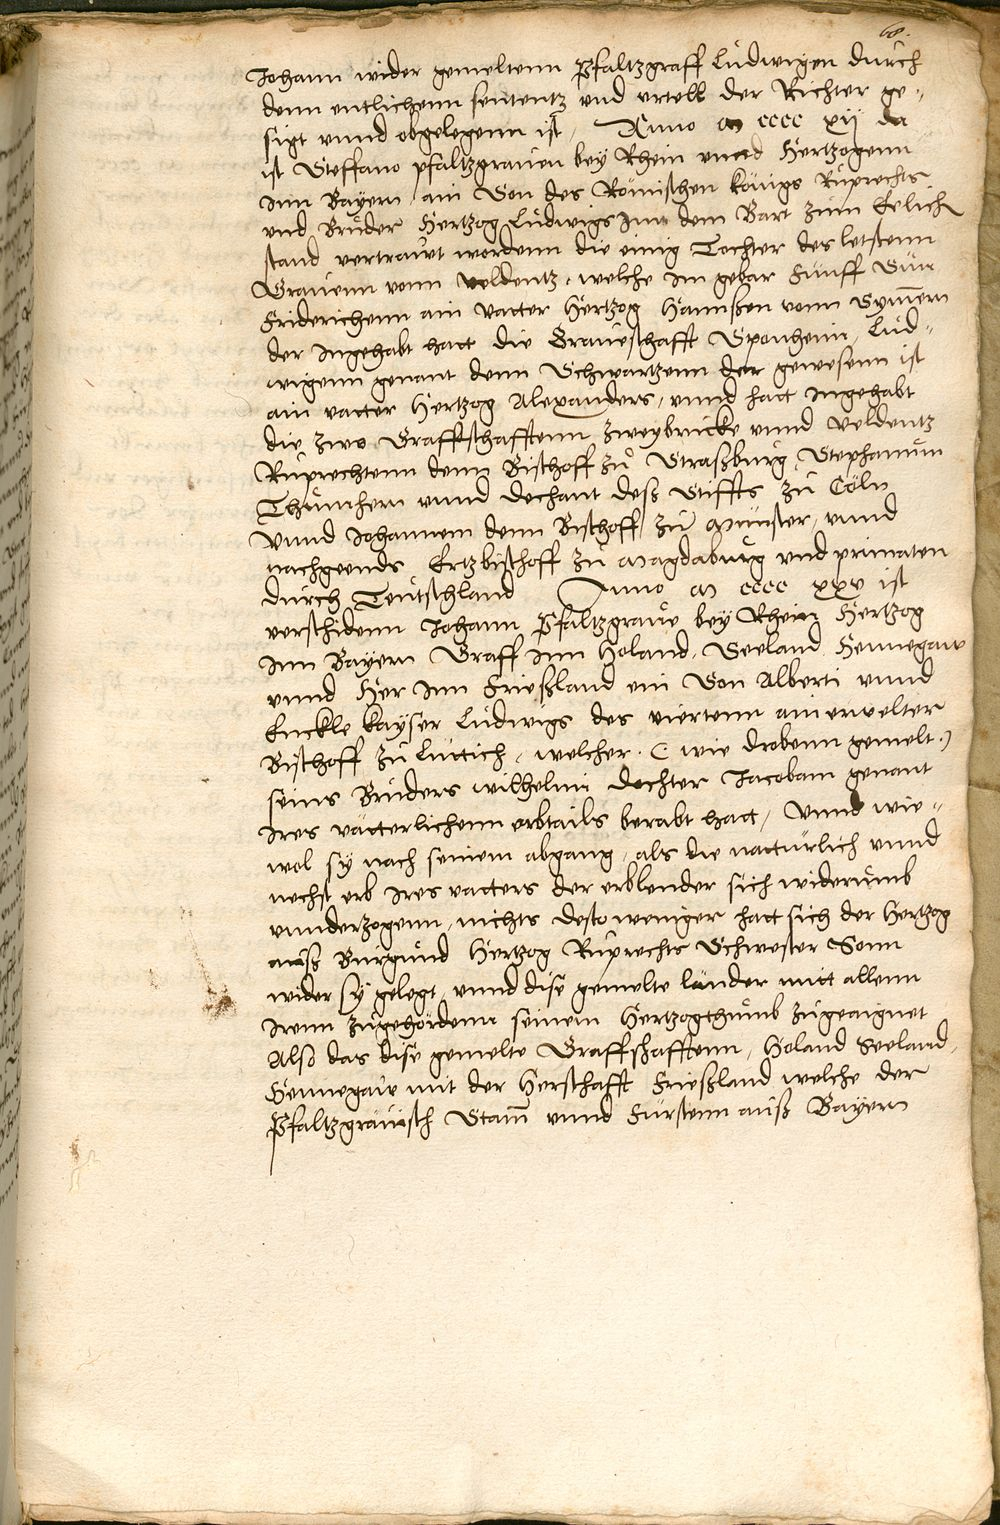 68.
Johann wider gemeltenn Pfaltzgraff Ludwigen durch
denn entlichenn sententz vnd vrtell der Richter ge-
sigt vnnd obgelegenn ist, Anno M cccc xij da
ist Steffano pfaltzgrauen bey Rhein vnnd Hertzogenn
inn Bayern ain Son des Römischen königs Ruprechts
vnd Bruder Hertzog Ludwigs im dem Bart zum Eelich
stand vertrawt wordenn die einig Tochter des letstenn
Grauenn vonn veldentz, welche im gebar Fünff Sün
Friderichenn ain vatter Hertzog Hannßen vonn Symern
der Ingehabt hatt die Graueschafft Sponheim, Lud-
wigenn genant denn Schwartzenn der gewesenn ist
ain vatter Hertzog Alexanders, vnnd hatt Ingehabt
die zwo Graffschafftenn Zweybricke vnnd Veldentz
Ruprechtenn denn Bischoff zu Straßburg, Stephanum
Thumhern vnnd dechant deß Stiffts zu Cöln
vnnd Johannem denn Bischoff zu Münster, vnnd
nachgeends Ertzbischoff zu Magdaburg vnd primaten
durch Teutschland Anno M cccc xxv ist
verschidenn Johann Pfaltzgraue bey Rhein Hertzog
inn Bayern Graff inn Holand, Seeland Hennegaw
vnnd Her inn Frießland ein Son Alberti vnnd
Enckle kayser Ludwigs des viertenn ain erwelter
Bischoff zu Luttich, welcher. ( wie drobenn gemelt.)
seins Bruders wilhelmi dochter Jacobam genant
ires vätterlichenn erbtails berabt hatt, Vnnd wie-
wol sy nach seinem abgang, als die nattürlich vnnd
nechst erb ires vatters der erblender sich widerumb
vnnderzogenn, nichts desto weniger hatt sich der Hertzog
auß Burgund Hertzog Ruprechts Schwester Sonn
wider sy gelegt vnnd dise gemelte länder mitt allenn
irenn zugehördenn seinem Hertzogthumb zugeaignet
Also das dise gemelte Graffschafftenn, Holand Seeland,
Hennegaw mit der Herschafft Frießland welche der
Pfaltzgräuisch Stam vnnd Fürstenn auß Bayern